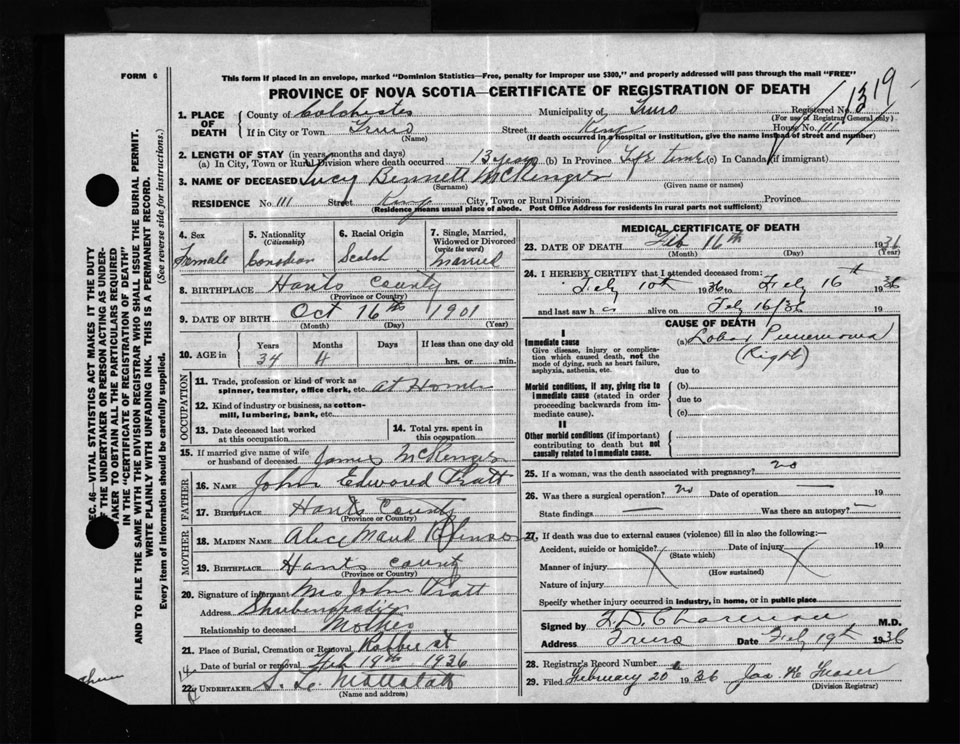 FORM 6
This form if placed in an envelope, marked "Dominion Statistics—Free, penalty for improper use $300," and properly addressed will pass through the mail "FREE"
PROVINCE OF NOVA SCOTIA—CERTIFICATE OF REGISTRATION OF DEATH
1319
1. PLACE OF DEATH
County of Colchester Municipality of Truro Registered No.
(For use of Registrar General only)
If in City or Town Truro Street King House No. 111
(Name) (If death occurred in a hospital or institution, give the name instead of street and number)
2. LENGTH OF STAY (in years, months and days)
(a) In City, Town or Rural Division where death occurred 13 years (b) In Province Life time (c) In Canada (if immigrant)
3. NAME OF DECEASED Lucy Bennett McKenzie
(Surname) (Given name or names)
RESIDENCE No 111 Street King City, Town or Rural Division Province
(Residence means usual place of abode. Post Office Address for residents in rural parts not sufficient)
4. Sex
Female
5. Nationality
(Citizenship)
Canadian
6. Racial Origin
Scotch
7. Single, Married, Widowed or Divorced
(write the word)
Married
8. BIRTHPLACE Hants County
(Province or Country)
9. DATE OF BIRTH Oct 16th 1901
(Month) (Day) (Year)
10. AGE in
Years Months Days If less than one day old
34 4 hrs. or min.
OCCUPATION
11. Trade, profession or kind of work as
spinner, teamster, office clerk, etc. at Home
12. Kind of industry or business, as cotton-
mill, lumbering, bank, etc.
13. Date deceased last worked
at this occupation
14. Total yrs. spent in
this occupation
15. If married give name of wife
or husband of deceased James McKenzie
FATHER
16. NAME John Edward Pratt
17. BIRTHPLACE Hants County
(Province or Country)
MOTHER
18. MAIDEN NAME Alice Maud
19. BIRTHPLACE Hants County
(Province or Country)
20. Signature of informant Mrs John Pratt
Address Shubenacadie
Relationship to deceased Mother
21. Place of Burial, Cremation or Removal
Date of burial or removal Feb 18th 1936
22. UNDERTAKER
(Name and address)
MEDICAL CERTIFICATE OF DEATH
23. DATE OF DEATH Feb 16th 1936
(Month) (Day) (Year)
24. I HEREBY CERTIFY that I attended deceased from:
Feby 10th 1936 to Feby 16th 1936
and last saw h alive on Feby 16/36 19
CAUSE OF DEATH
I
Immediate cause
Give disease, injury or complica-
tion which caused death, not the
mode of dying, such as heart failure,
asphyxia, asthenia, etc.
(a) Lobar Pneumonia
(Right)
due to
Morbid conditions, if any, giving rise to
immediate cause (stated in order
proceeding backwards from im-
mediate cause).
(b)
due to
(c)
II
Other morbid conditions (if important)
contributing to death but not
causally related to immediate cause.
25. If a woman, was the death associated with pregnancy? no
26. Was there a surgical operation? no Date of operation 19
State findings — Was there an autopsy? —
27. If death was due to external causes (violence) fill in also the following:—
Accident, suicide or homicide? Date of injury 19
(State which)
Manner of injury
(How sustained)
Nature of injury
Specify whether injury occurred in industry, in home, or in public place
Signed by M.D.
Address Truro Date Feby 19th 1936
28. Registrar's Record Number
29. Filed February 20 1936 Jas. H Fraser
(Division Registrar)
SEC. 46—VITAL STATISTICS ACT MAKES IT THE DUTY
OF THE UNDERTAKER OR PERSON ACTING AS UNDER-
TAKER TO OBTAIN ALL THE PARTICULARS REQUIRED
IN THE "CERTIFICATE OF REGISTRATION OF DEATH"
AND TO FILE THE SAME WITH THE DIVISION REGISTRAR WHO SHALL ISSUE THE BURIAL PERMIT.
WRITE PLAINLY WITH UNFADING INK. THIS IS A PERMANENT RECORD.
Every item of information should be carefully supplied. (See reverse side for instructions.)